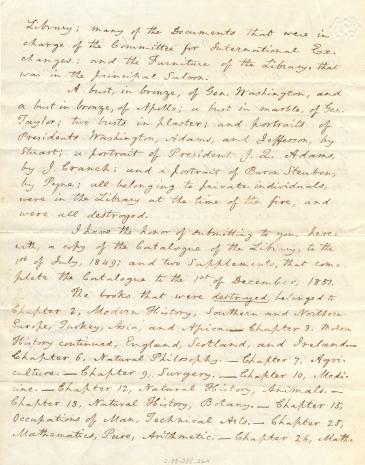 Library; many of the Documents that were in
charge of the Committee for International Ex-
changes; and the Furniture of the Library, that
was in the principal Saloon.
A bust, in bronze, of Gen. Washington, and
a bust in bronze, of Apollo; a bust in marble, of Gen.
Taylor; two busts in plaster; and portraits of
Presidents Washington, Adams, and Jefferson, by
Stuart; a portrait of President J. Q. Adams,
by J. Cranch; and a portrait of Baron Steuben,
by Pyne; all belonging to private individuals,
were in the Library at the time of the fire, and
were all destroyed.
I have the honor of submitting to you, here-
with, a copy of the Catalogue of the Library, to the
1st of July, 1849; and two Supplements, that com-
plete the Catalogue to the 1st of December, 1851.
The books that were destroyed belonged to
Chapter 2, Modern History, Southern and Northern
Europe, Turkey, Asia, and Africa.— Chapter 3. Modern
History continued, England, Scotland, and Ireland—
Chapter 6, Natural Philosophy.— Chapter 7, Agri-
culture.— Chapter 9, Surgery.— Chapter 10, Medi-
cine.— Chapter 12, Natural History, Animals.—
Chapter 13, Natural History, Botany.— Chapter 15,
Occupations of Man, Technical Arts.— Chapter 25,
Mathematics, Pure, Arithmetic.— Chapter 26, Mathe-